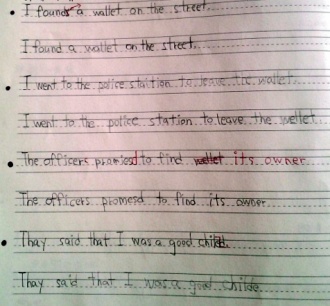 I found a wallet on the street.
I found a wallet on the street.
I went to the police staition to leave the wallet.
I went to the police station to leave the wellet.
The officers promiesd to find wallet its owner.
The officers promesd to find its owner.
Thay said that I was a good child.
Thay said that I was a good childe